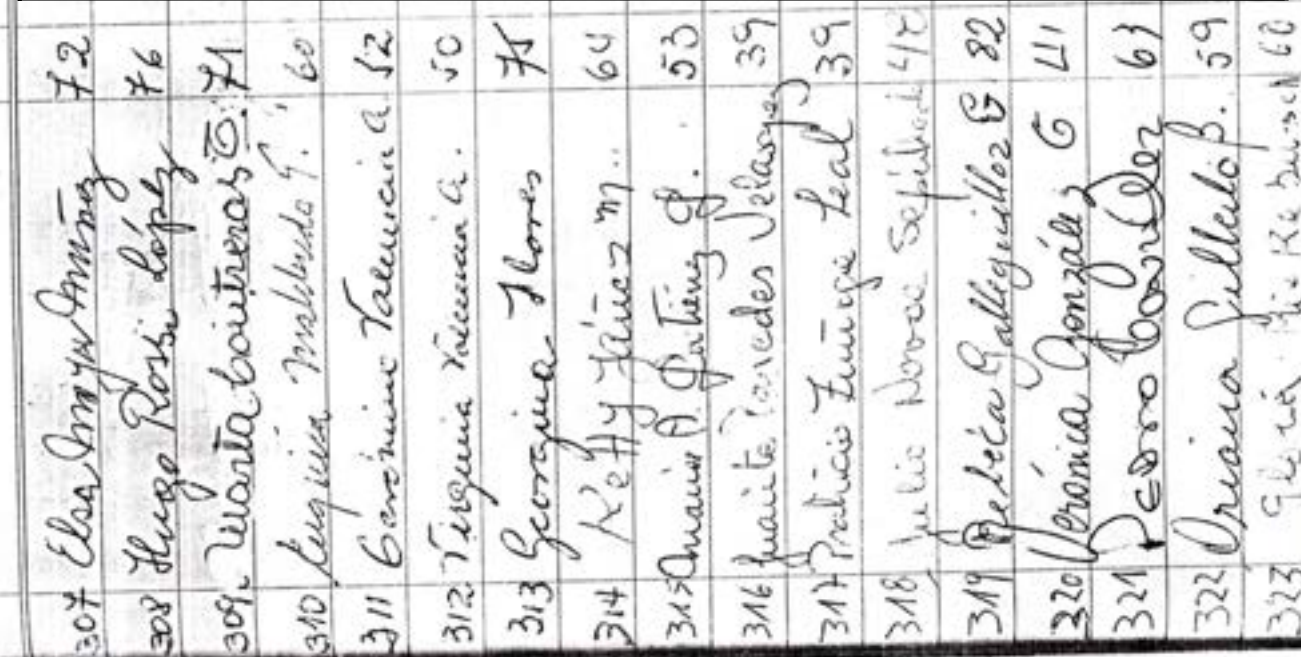 307 Elsa Amya Amya 72
308 Hugo Rossi López 76
309. Marta Contreras O. 71
310 Eugenia Maldonado G. 60
311 Gerónimo Valencia A. 52
312 Virginia Valencia A. 50
313 Georgina Flores 75
314 Ketty Yáñez M.. 64
315 A. 53
316 Juanita Paredes Velasquez 39
317 Patricio Zuñiga Leal 39
318 Julio Novoa Sepúlveda
319 Rebéca Galleguillos G 82
320 Verónica González G 41
321 Pedro 63
322 Oriana B. 59
323 60